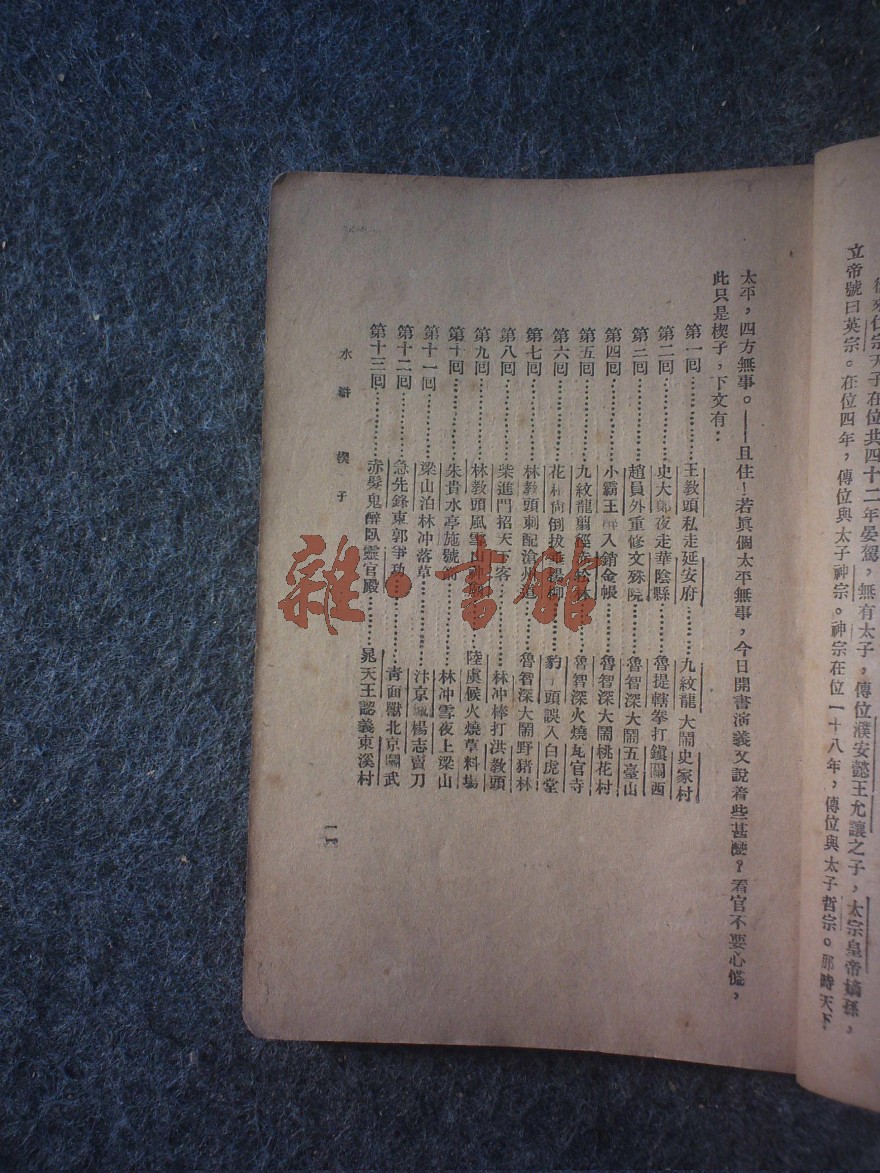 來仁宗天子在位共四十二年晏駕，無有太子，傳位濮安懿王允讓之子，太宗皇帝嫡孫，
立帝號曰英宗。在位四年，傳位與太子神宗。神宗在位一十八年，傳位與太子哲宗。那時天下
太平，四方無事。——且住！若眞個太平無事，今日開書演義又說着些甚麼？看官不要心慌，
此只是楔子，下文有：
第一回………王教頭私走延安府………九紋龍大鬧史家村
第二回………史大郎夜走華陰縣………魯提轄拳打鎭關西
第二回………趙員外重修文殊院………魯智深大鬧五臺山
第四回………小霸王醉入銷金帳………魯智深大鬧桃花村
第五回………九紋龍翦徑赤松林………魯智深火燒瓦官寺
第六回………花和尙倒拔垂楊柳………豹子頭誤入白虎堂
第七回………林教頭刺配滄州道………魯智深大鬧野豬林
第八回………柴進門招天下客………林冲棒打洪敎頭
第九回………林敎頭風雪山神廟………陸虞候火燒草料場
第十回………朱貴水亭施號箭………林冲雪夜上梁山
第十一回………梁山泊林冲落草………汴京城楊志賣刀
第十二回………急先鋒東郭爭功………靑面獸北京鬭武
第十三回………赤髮鬼醉臥靈官殿………晁天王認義東溪村
水滸 楔子
雜·書館